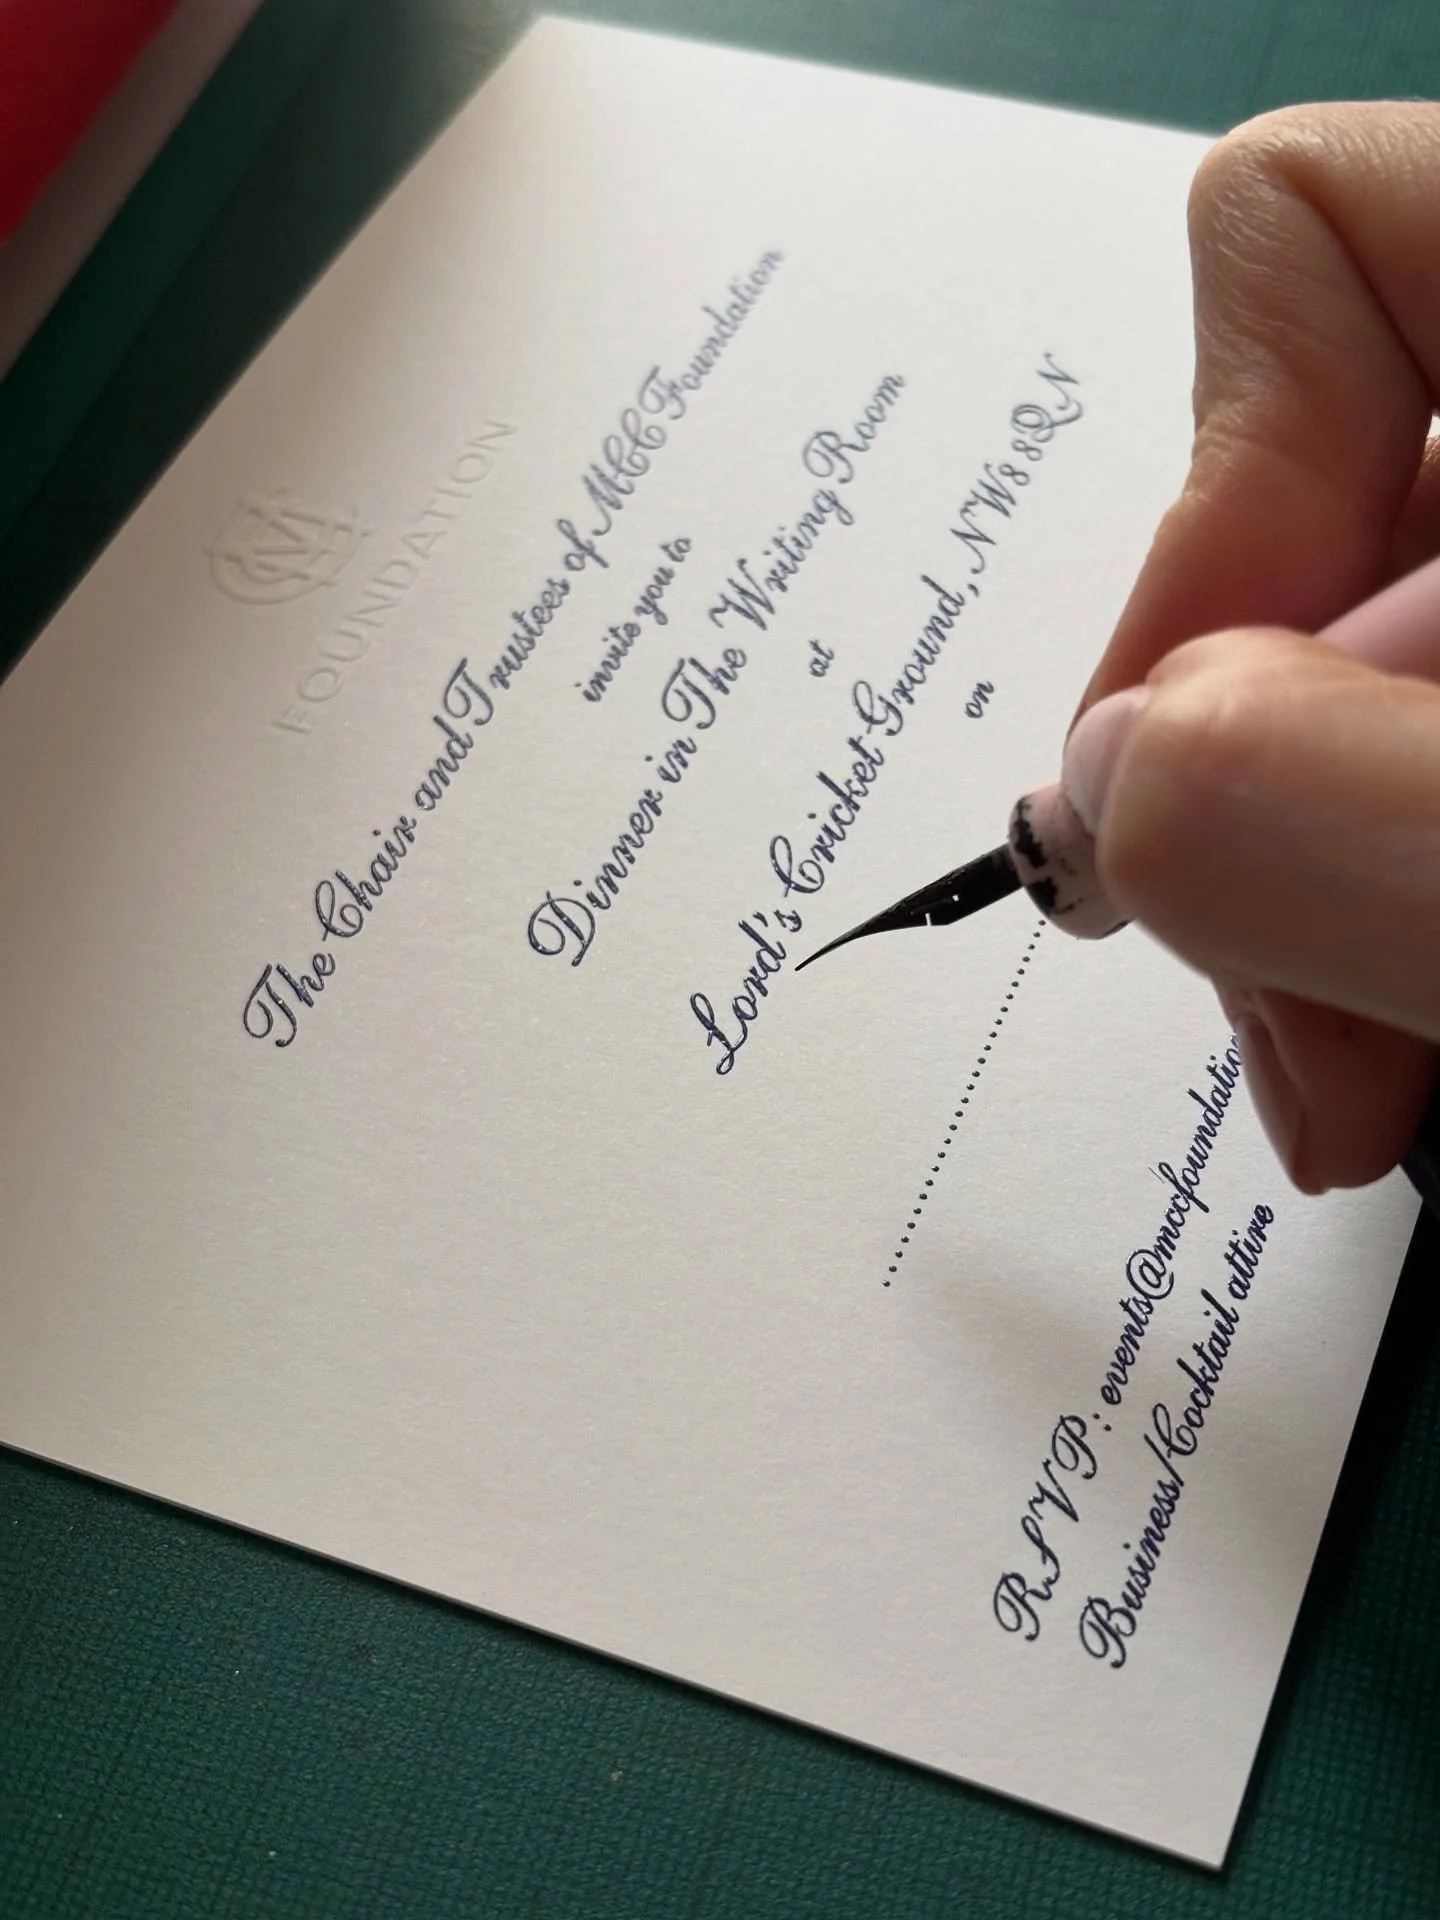 MCC
FOUNDATION
The Chair and Trustees of MCC Foundation
invite you to
Dinner in The Writing Room
at
Lord's Cricket Ground, NW8 8QN
on
RSVP: events@mccfoundation
Business/Cocktail attire